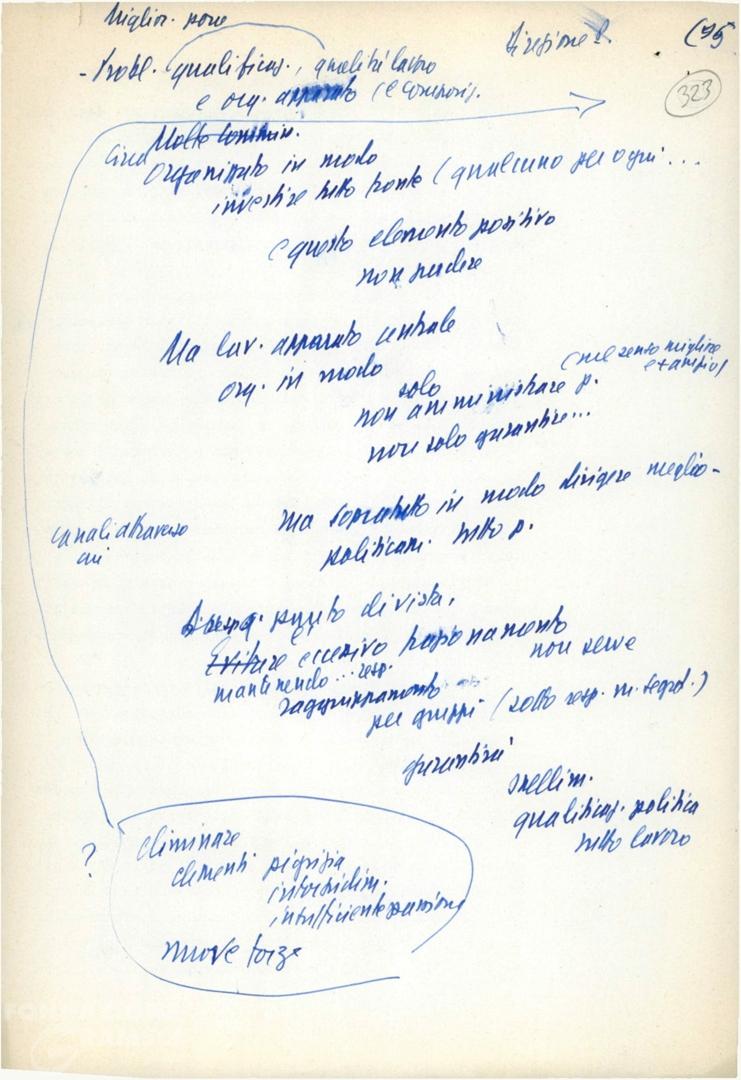 Miglior.
Direzione
(75
323
- Probl. qualificaz., qualità lavoro
e org. apparato (e composiz.
Molto
Circa
Organizzato in modo
investire tutto fronte (qualcuno per ogni ...
(questo elemento positivo
non perdere
Ma lav. apparato centrale
org. in modo
(nel senso migliore
e + ampio)
solo
non amministrare p.
non solo garantire...
ma sopratutto in modo dirigere meglio -
politicam. tutto p.
canali attraverso
cui
punto di vista,
Evitare eccessivo frazionamento
non serve
mantenendo ... resp.
raggruppamento
per gruppi (sotto resp. m. segret.)
garantirà
snellim.
qualificaz. politica
tutto lavoro
?
eliminare
elementi pigrizia
intorpidim.
insufficiente passione
nuove forze
FONDAZIONE